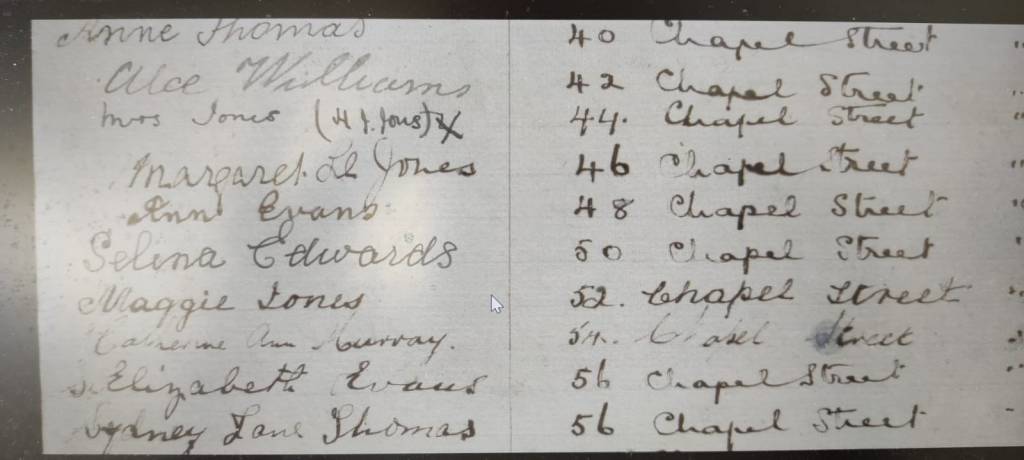 Anne Thomas 40 Chapel Street "
Alce Williams 42 Chapel Street
Mrs Jones (H J. Jones) X 44. Chapel Street "
Margaret. Jones 46 Chapel Street "
Ann Evans 48 Chapel Street "
Selina Edwards 50 Chapel Street
Maggie Jones 52. Chapel Street "
Catherine Ann Murray. 54. Chapel Street
Elizabeth Evans 56 Chapel Street "
Sydney Jane Thomas 56 Chapel Street